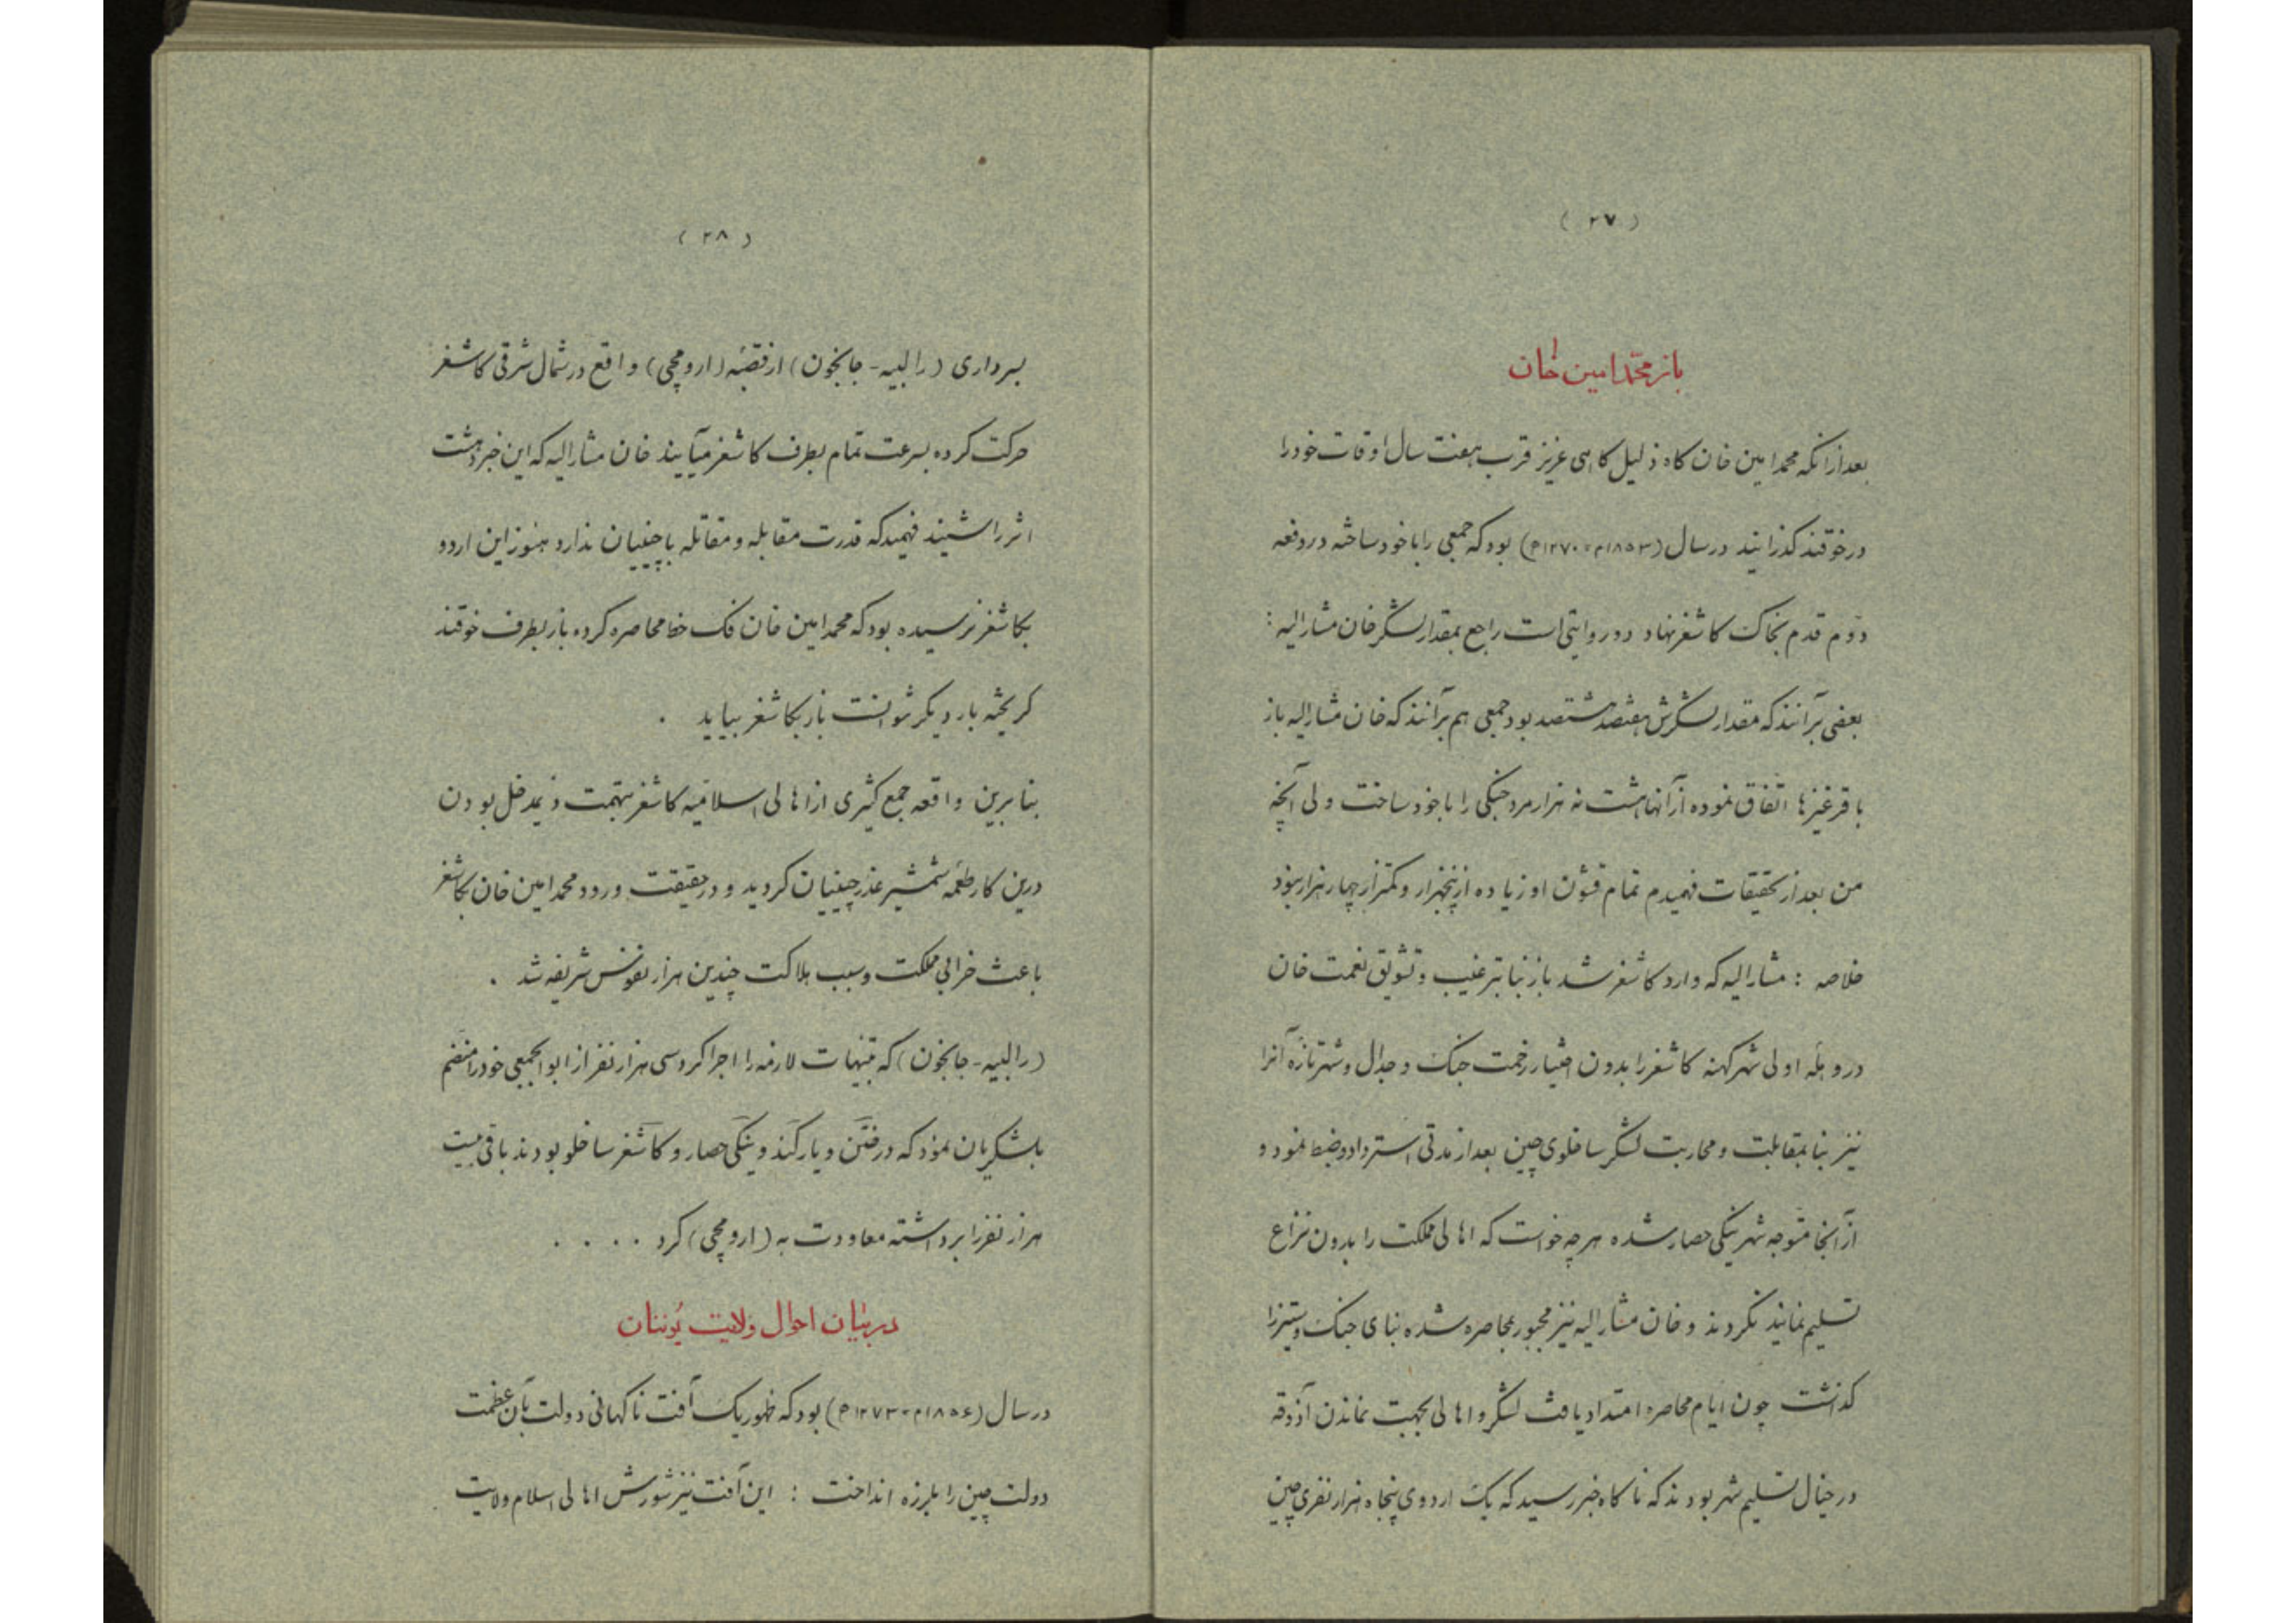 ( ۲۷ )
باز محمّد امین خان
بعد ازانکه محمد امین خان کاه ذلیل کاهی عزیز قرب هفت سال اوقات خود را
در خوقند کذرانید در سال (۱۸۵۳م=۱۲۷۰ه) بود که جمعی را با خود ساخته در دفعه
دوّم قدم بخاک کاشغر نهاد دو روایتی است راجع بمقدار لشکر خان مشارالیه :
بعضی برآنند که مقدار لشکرش هفتصد هشتصد بود جمعی هم برآنند که خان مشارالیه باز
با قرغیزها اتّفاق نموده ازآنها هشت نه هزار مرد جنکی را با خود ساخت ولی آنچه
من بعد از تحقیقات فهمیدم تمام قشون او زیاده از پنجهزار و کمتر از چهار هزار نبود
خلاصه : مشارالیه که وارد کاشغر شد باز بنا بترغیب و تشویق نعمت خان
در وهلهٔ اولی شهر کهنه کاشغر را بدون اختیار زحمت جنک و جدال و شهر تازه آنرا
نیز بنا بمقابلت و محاربت لشکر ساخلوی چین بعد از مدتی استرداد و ضبط نمود و
از آنجا متوجه شهر ینکی حصار شده هرچه خواست که اهالی مملکت را بدون نزاع
تسلیم نمایند نکردند و خان مشارالیه نیز مجبور بمحاصره شده بنای جنک و ستیز را
کذاشت چون ایام محاصره امتداد یافت لشکر و اهالی بجهت نماندن آذوقه
در خیال تسلیم شهر بودند که ناکاه خبر رسید که یک اردوی پنجاه هزار نفری چین
( ۲۸ )
بسرداری (رالبیه - جانجون) از قصبهٔ (ارومچی) واقع در شمال شرقی کاشغر
حرکت کرده بسرعت تمام بطرف کاشغر میآیند خان مشارالیه که این خبر دهشت
اثر را شنید فهمید که قدرت مقابله و مقاتله با چینیان ندارد هنوز این اردو
بکاشغر نرسیده بود که محمد امین خان فک خط محاصره کرده باز بطرف خوقند
کریخته بار دیکر نتوانست باز بکاشغر بیاید .
بنا برین واقعه جمع کثیری از اهالی اسلامیه کاشغر بتهمت ذیمدخل بودن
درین کار طعمهٔ شمشیر غدر چینیان کردید و در حقیقت ورود محمد امین خان بکاشغر
باعث خرابی مملکت و سبب هلاکت چندین هزار نفوس شریفه شد .
(رالبیه - جانجون) که تنبیهات لازمه را اجرا کرد سی هزار نفر از ابوالجمعی خود را منضم
بلشکریان نمود که در ختن و یارکند و ینکی حصار و کاشغر ساخلو بودند باقی بیست
هزار نفر را برداشته معاودت به (ارومچی) کرد . . . .
در بیان احوال ولایت یُوننان
در سال (۱۸۵۶م=۱۲۷۳ه) بود که ظهور یک آفت ناکهانی دولت بآن عظمت
دولت چین را بلرزه انداخت : این آفت نیز شورش اهالی اسلام ولایت